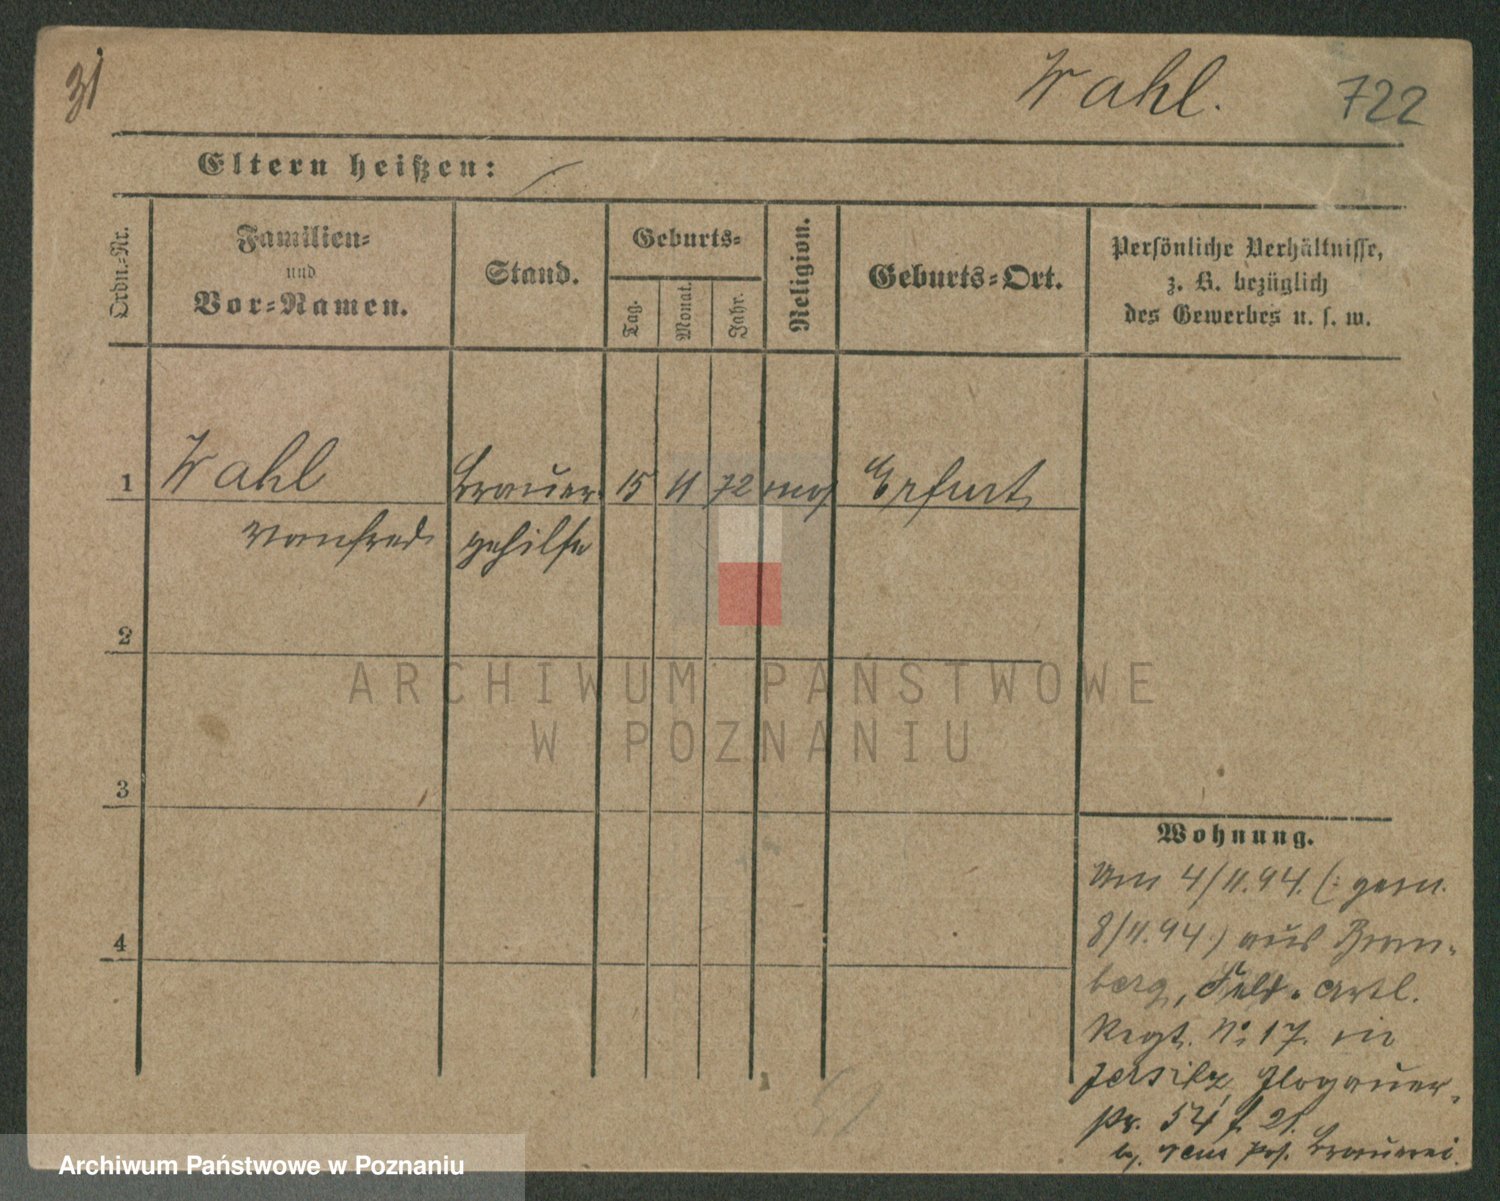 31
Wahl.
722
Eltern heißen:
Ordn.-Nr.
Familien-
und
Vor-Namen.
Stand.
Geburts-
Tag.
Monat.
Jahr.
Religion.
Geburts-Ort.
Persönliche Verhältnisse,
z. B. bezüglich
des Gewerbes u. s. w.
1 Wahl Brauer- 15 11 72 mos Erfurt
Manfred gehilfe
2
3
4
Wohnung.
Am 4/11.94. (: gem.
8/11.94.) aus Brom-
berg, Feld-Artl.
Regt. No 17. in
Jersitz, Glogauer-
str. 54
b. Brauerei.
ARCHIWUM PAŃSTWOWE
W POZNANIU
Archiwum Państwowe w Poznaniu